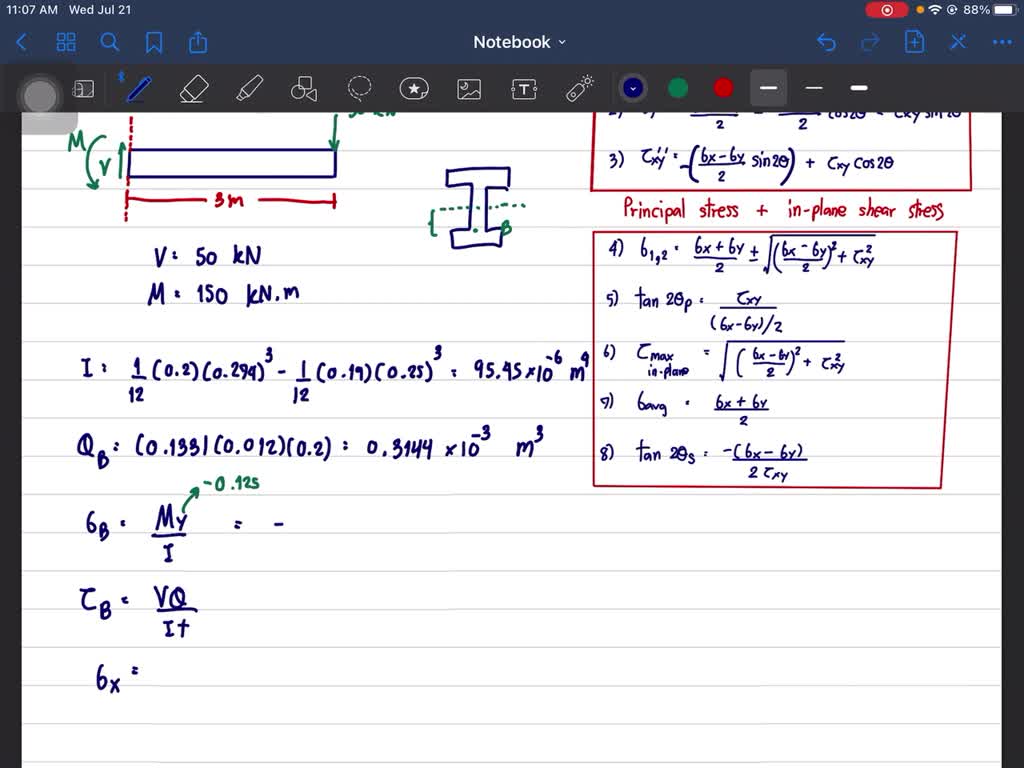 11:07 AM Wed Jul 21
88%
Notebook
M
V
3m
B
V = 50 kN
M = 150 kN.m
I = 1/12 (0.2)(0.274)³ - 1/12 (0.19)(0.25)³ = 95.45 × 10⁻⁶ m⁴
Q_B = (0.131)(0.012)(0.2) = 0.3144 × 10⁻³ m³
-0.125
σ_B = My/I = -
τ_B = VQ/It
σx =
3) τxy'' = -(σx-σy/2 sin2θ) + τxy cos2θ
Principal stress + in-plane shear stress
4) σ1,2 = σx+σy/2 ± √((σx-σy/2)² + τ²xy)
5) tan 2θp = τxy/(σx-σy)/2
6) τmax in-plane = √((σx-σy/2)² + τ²xy)
7) σavg = σx+σy/2
8) tan 2θs = -(σx-σy)/2τxy